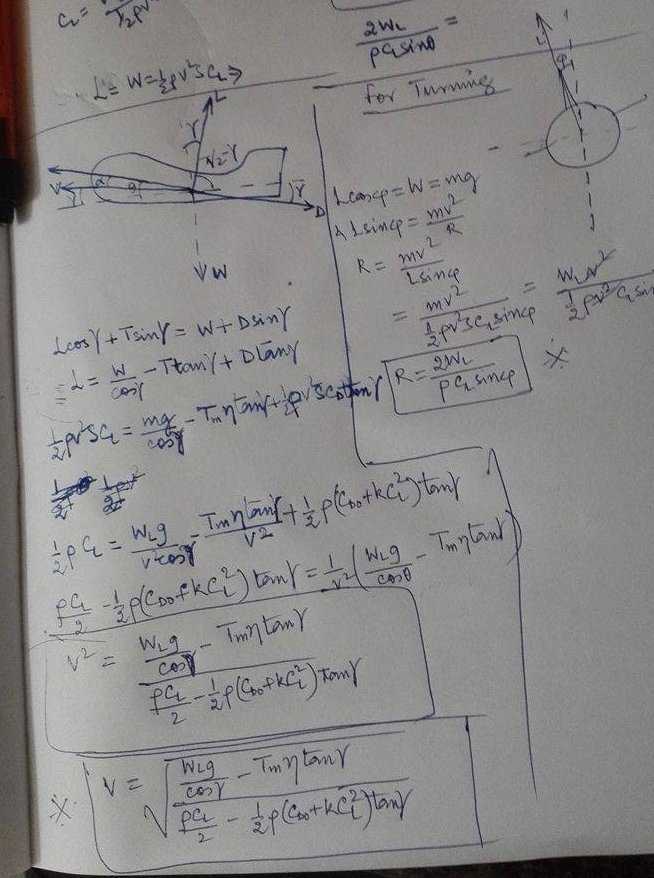 2W_L / ρC_L sinθ =
L = W = ½ρV²SC_L ⇒
For Turning
L
γ
W
D
L
φ
Lcosφ = W = mg
Lsinφ = mv²/R
R = mv²/Lsinφ
= mv² / ½ρv²SC_L sinφ = W_L v² / ½ρv²C_L sin
R = 2W_L / ρC_L sinφ
Lcosγ + Tsinγ = W + Dsinγ
L = W/cosγ - Ttanγ + Dtanγ
½ρv²SC_L = mg/cosγ - T_m η tanγ + ½ρv²SC_D tanγ
½ρC_L = W_L g / v²cosγ - T_m η tanγ / V² + ½ρ(C_D0 + kC_L²)tanγ
ρC_L/2 - ½ρ(C_D0 + kC_L²)tanγ = 1/v² (W_L g / cosθ - T_m η tanγ)
V² = (W_L g / cosγ - T_m η tanγ) / (ρC_L/2 - ½ρ(C_D0 + kC_L²)tanγ)
V = √((W_L g / cosγ - T_m η tanγ) / (ρC_L/2 - ½ρ(C_D0 + kC_L²)tanγ))